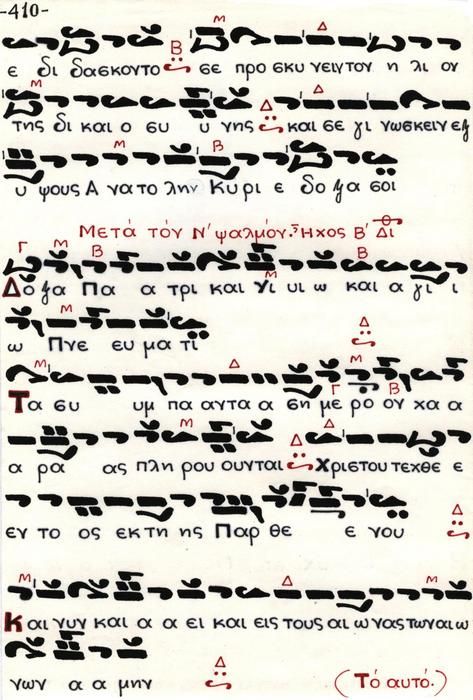 -410-
ε δι δασκοντο σε προ σκυ νειντον η λι ον
της δι και ο συ υ νης και σε γι νωσκειν εξ
υ ψους Α να το λην Κυ ρι ε δο ξα σοι
Μετά τόν Ν' ψαλμόν. Ἦχος Β' Δι
Δο ξα Πα α τρι και Υι υι ω και α γι ι
ω Πνε ευ μα τι
Τα συ υμ πα αντα α ση με ρο ον χα α
α ρα ας πλη ρου ουνται Χριστου τεχθε ε
εν το ος εκ τη ης Παρ θε ε νου
Και νυν και α α ει και εις τους αι ω νας των αι ω
νων α α μην
(Τό αυτό.)